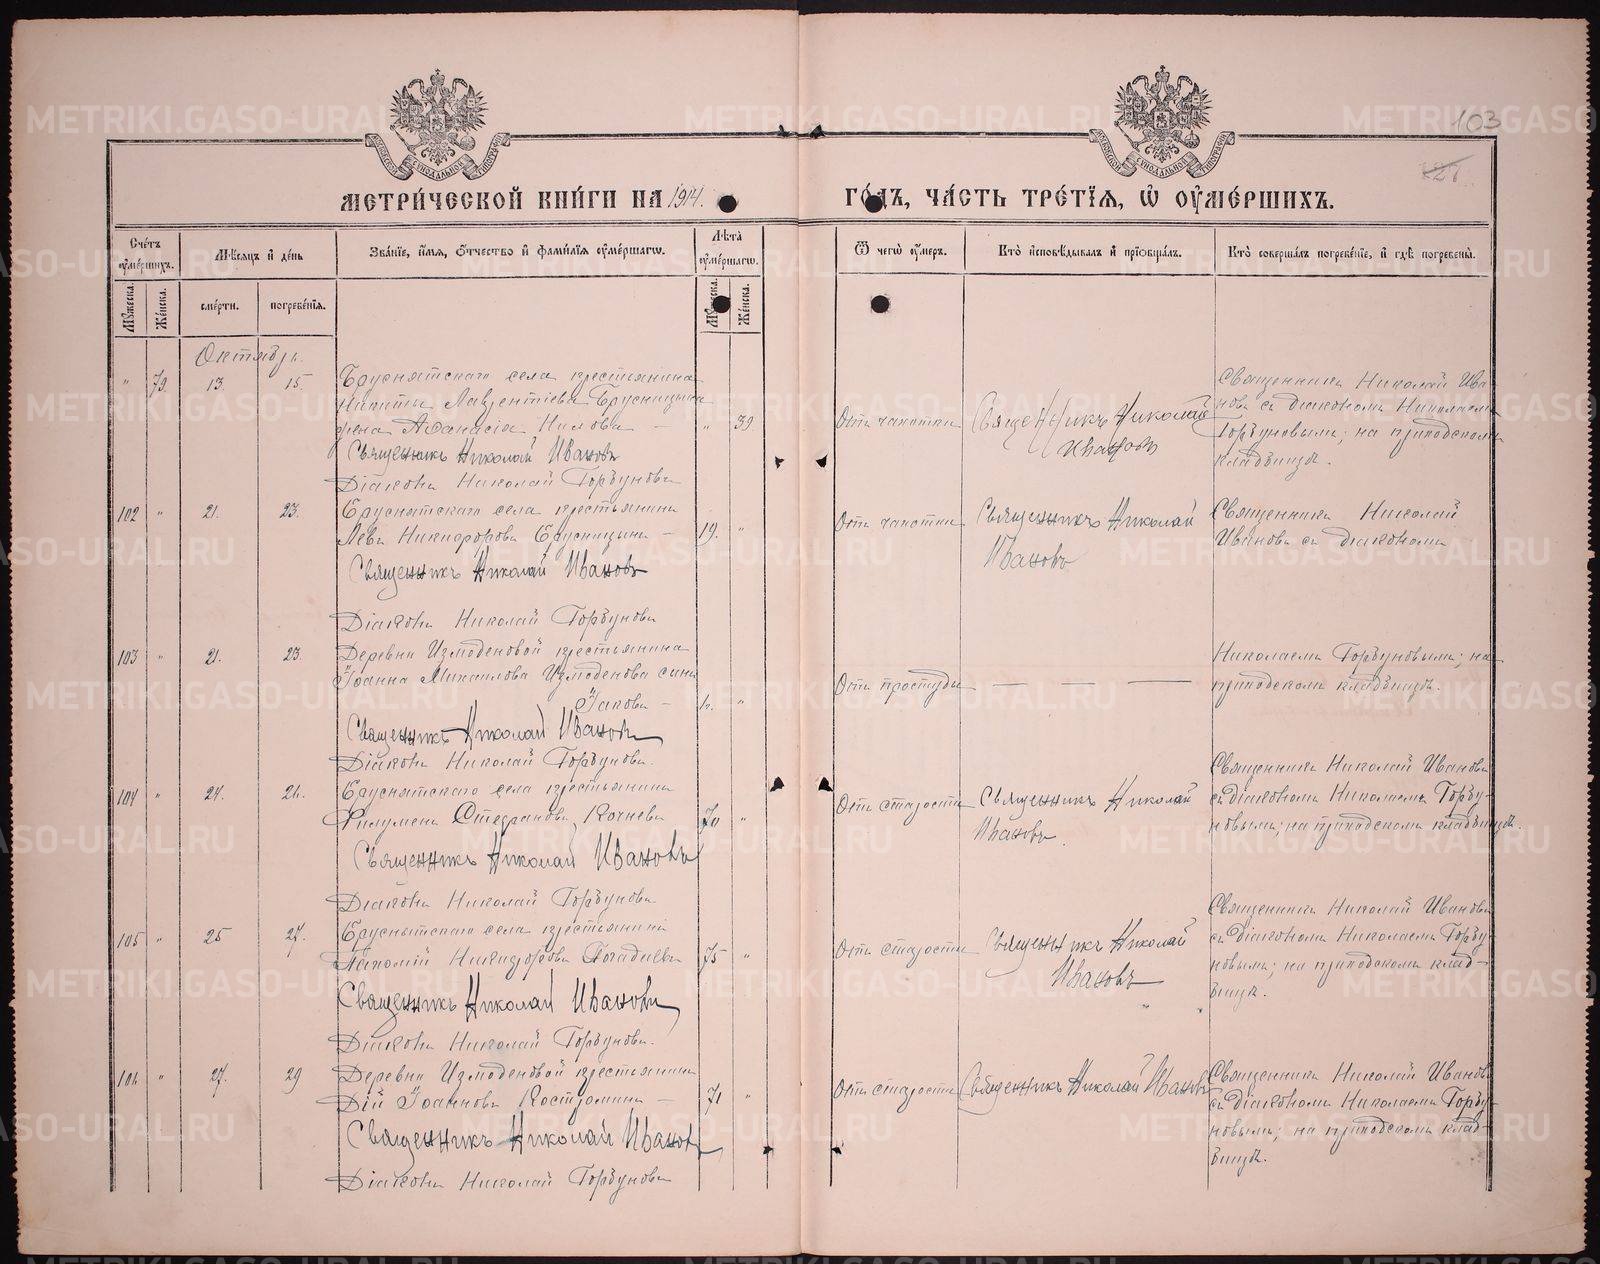 103
МЕТРИЧЕСКОЙ КНИГИ НА 1914. ГОДЪ, ЧАСТЬ ТРЕТІЯ, Ѿ ОУМЕРШИХЪ.
Счетъ оумершихъ.
Мужеска.
Женска.
Мѣсяцъ и день
смерти.
погребенія.
Званіе, имя, отчество и фамилія оумершагѡ.
Лѣта оумершагѡ.
Мужеска.
Женска.
Ѿ чегѡ оумеръ.
Кто исповѣдывалъ и пріобщалъ.
Кто совершалъ погребеніе, и гдѣ погребены.
Октябрь.
" 79. 13. 15.
Бруснятскаго села крестьянина
Никиты Лаврентіева Брусницына
жена Аѳанасія Нилова — " 39
Священникъ Николай Ивановъ
Діаконъ Николай Горбуновъ
Отъ чахотки
Священникъ Николай
Ивановъ
Священникъ Николай Ива-
новъ съ діакономъ Николаемъ
Горбуновымъ; на приходскомъ
кладбищѣ.
102 " 21. 23.
Бруснятскаго села крестьянинъ
Левъ Никифоровъ Брусницынъ — 19. "
Священникъ Николай Ивановъ
Діаконъ Николай Горбуновъ
Отъ чахотки
Священникъ Николай
Ивановъ
Священникъ Николай
Ивановъ съ діакономъ
103 " 21. 23.
Деревни Измоденовой крестьянина
Іоанна Михаилова Измоденова сынъ
Іаковъ — "
Священникъ Николай Ивановъ
Діаконъ Николай Горбуновъ.
Отъ простуды — — —
Николаемъ Горбуновымъ; на
приходскомъ кладбищѣ.
104 " 24. 26.
Бруснятскаго села крестьянинъ
Филуменъ Стефановъ Кочневъ 70 "
Священникъ Николай Ивановъ
Діаконъ Николай Горбуновъ
Отъ старости
Священникъ Николай
Ивановъ.
Священникъ Николай Ивановъ
съ діакономъ Николаемъ Горбу-
новымъ; на приходскомъ кладбищѣ.
105 " 25 27.
Бруснятскаго села крестьянинъ
Никифоровъ 75 "
Священникъ Николай Ивановъ
Діаконъ Николай Горбуновъ.
Отъ старости
Священникъ Николай
Ивановъ
Священникъ Николай Ивановъ
съ діакономъ Николаемъ Горбу-
новымъ; на приходскомъ клад-
бищѣ.
106 " 27. 29
Деревни Измоденовой крестьянинъ
Дій Іоанновъ Костроминъ — 71 "
Священникъ Николай Ивановъ
Діаконъ Николай Горбуновъ
Отъ старости
Священникъ Николай Ивановъ
Священникъ Николай Ивановъ
съ діакономъ Николаемъ Горбу-
новымъ; на приходскомъ клад-
бищѣ.
METRIKI.GASO-URAL.RU